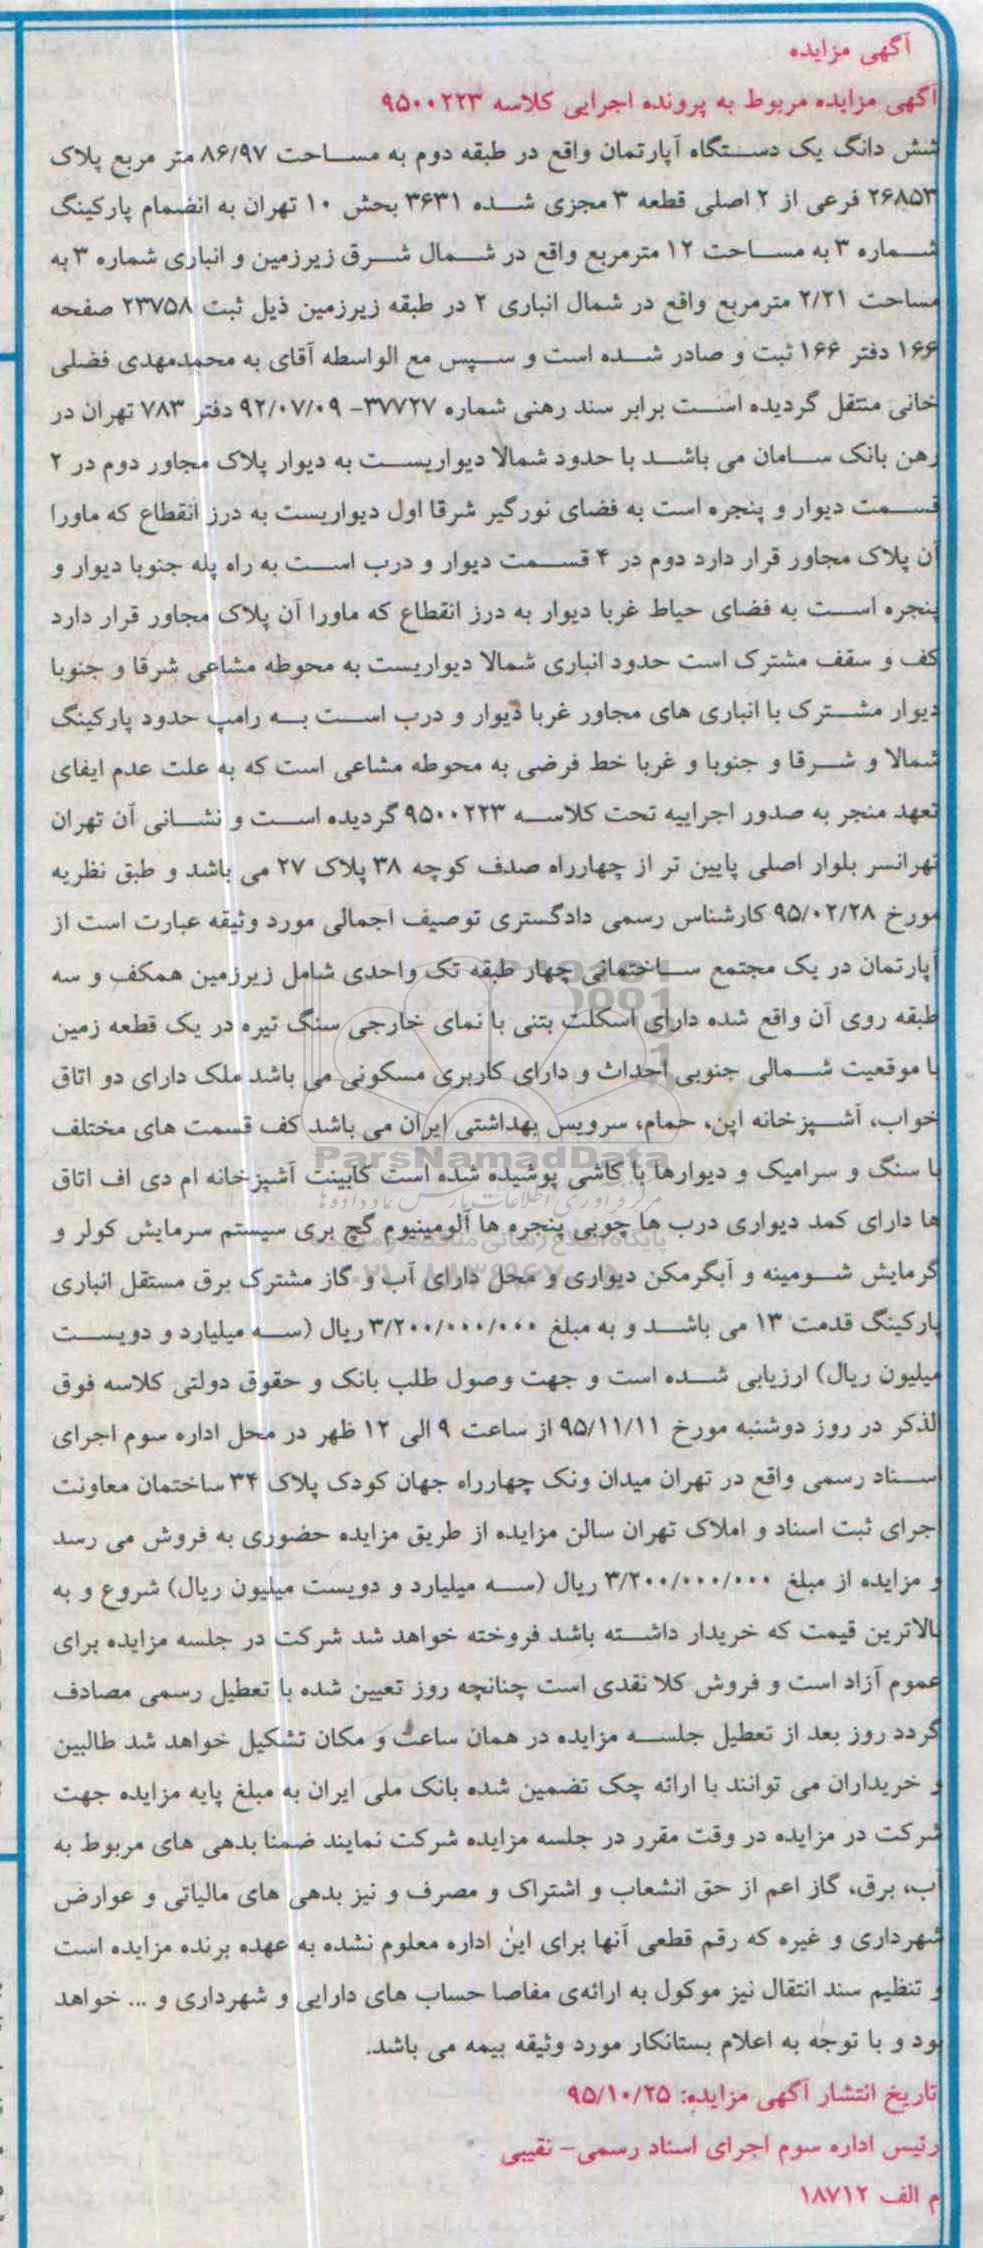 آگهی مزایده
آگهی مزایده مربوط به پرونده اجرایی کلاسه ۹۵۰۰۲۲۳
شش دانگ یک دستگاه آپارتمان واقع در طبقه دوم به مساحت ۸۶/۹۷ متر مربع پلاک
۲۶۸۵۳ فرعی از ۲ اصلی قطعه ۳ مجزی شده ۳۶۳۱ بخش ۱۰ تهران به انضمام پارکینگ
شماره ۳ به مساحت ۱۲ مترمربع واقع در شمال شرق زیرزمین و انباری شماره ۳ به
مساحت ۲/۲۱ مترمربع واقع در شمال انباری ۲ در طبقه زیرزمین ذیل ثبت ۲۳۷۵۸ صفحه
۱۶۶ دفتر ۱۶۶ ثبت و صادر شده است و سپس مع الواسطه آقای به محمدمهدی فضلی
خانی منتقل گردیده است برابر سند رهنی شماره ۳۷۷۲۷- ۹۲/۰۷/۰۹ دفتر ۷۸۳ تهران در
رهن بانک سامان می باشد با حدود شمالا دیواریست به دیوار پلاک مجاور دوم در ۲
قسمت دیوار و پنجره است به فضای نورگیر شرقا اول دیواریست به درز انقطاع که ماورا
آن پلاک مجاور قرار دارد دوم در ۴ قسمت دیوار و درب است به راه پله جنوبا دیوار و
پنجره است به فضای حیاط غربا دیوار به درز انقطاع که ماورا آن پلاک مجاور قرار دارد
کف و سقف مشترک است حدود انباری شمالا دیواریست به محوطه مشاعی شرقا و جنوبا
دیوار مشترک با انباری های مجاور غربا دیوار و درب است به رامپ حدود پارکینگ
شمالا و شرقا و جنوبا و غربا خط فرضی به محوطه مشاعی است که به علت عدم ایفای
تعهد منجر به صدور اجراییه تحت کلاسه ۹۵۰۰۲۲۳ گردیده است و نشانی آن تهران
تهرانسر بلوار اصلی پایین تر از چهارراه صدف کوچه ۳۸ پلاک ۲۷ می باشد و طبق نظریه
مورخ ۹۵/۰۲/۲۸ کارشناس رسمی دادگستری توصیف اجمالی مورد وثیقه عبارت است از
آپارتمان در یک مجتمع ساختمانی چهار طبقه تک واحدی شامل زیرزمین همکف و سه
طبقه روی آن واقع شده دارای اسکلت بتنی با نمای خارجی سنگ تیره در یک قطعه زمین
با موقعیت شمالی جنوبی احداث و دارای کاربری مسکونی می باشد ملک دارای دو اتاق
خواب، آشپزخانه اپن، حمام، سرویس بهداشتی ایران می باشد کف قسمت های مختلف
ParsNamadData
با سنگ و سرامیک و دیوارها با کاشی پوشیده شده است کابینت آشپزخانه ام دی اف اتاق
ها دارای کمد دیواری درب ها چوبی پنجره ها آلومینیوم گچ بری سیستم سرمایش کولر و
گرمایش شومینه و آبگرمکن دیواری و محل دارای آب و گاز مشترک برق مستقل انباری
پارکینگ قدمت ۱۳ می باشد و به مبلغ ۳/۲۰۰/۰۰۰/۰۰۰ ریال (سه میلیارد و دویست
میلیون ریال) ارزیابی شده است و جهت وصول طلب بانک و حقوق دولتی کلاسه فوق
الذکر در روز دوشنبه مورخ ۹۵/۱۱/۱۱ از ساعت ۹ الی ۱۲ ظهر در محل اداره سوم اجرای
اسناد رسمی واقع در تهران میدان ونک چهارراه جهان کودک پلاک ۳۴ ساختمان معاونت
اجرای ثبت اسناد و املاک تهران سالن مزایده از طریق مزایده حضوری به فروش می رسد
و مزایده از مبلغ ۳/۲۰۰/۰۰۰/۰۰۰ ریال (سه میلیارد و دویست میلیون ریال) شروع و به
بالاترین قیمت که خریدار داشته باشد فروخته خواهد شد شرکت در جلسه مزایده برای
عموم آزاد است و فروش کلا نقدی است چنانچه روز تعیین شده با تعطیل رسمی مصادف
گردد روز بعد از تعطیل جلسه مزایده در همان ساعت و مکان تشکیل خواهد شد طالبین
و خریداران می توانند با ارائه چک تضمین شده بانک ملی ایران به مبلغ پایه مزایده جهت
شرکت در مزایده در وقت مقرر در جلسه مزایده شرکت نمایند ضمنا بدهی های مربوط به
آب، برق، گاز اعم از حق انشعاب و اشتراک و مصرف و نیز بدهی های مالیاتی و عوارض
شهرداری و غیره که رقم قطعی آنها برای این اداره معلوم نشده به عهده برنده مزایده است
و تنظیم سند انتقال نیز موکول به ارائه‌ی مفاصا حساب های دارایی و شهرداری و ... خواهد
بود و با توجه به اعلام بستانکار مورد وثیقه بیمه می باشد.
تاریخ انتشار آگهی مزایده: ۹۵/۱۰/۲۵
رئیس اداره سوم اجرای اسناد رسمی- نقیبی
م الف ۱۸۷۱۲